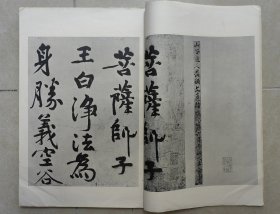 山谷道人
菩薩師子
菩薩師子
王白淨法為
身勝義空谷